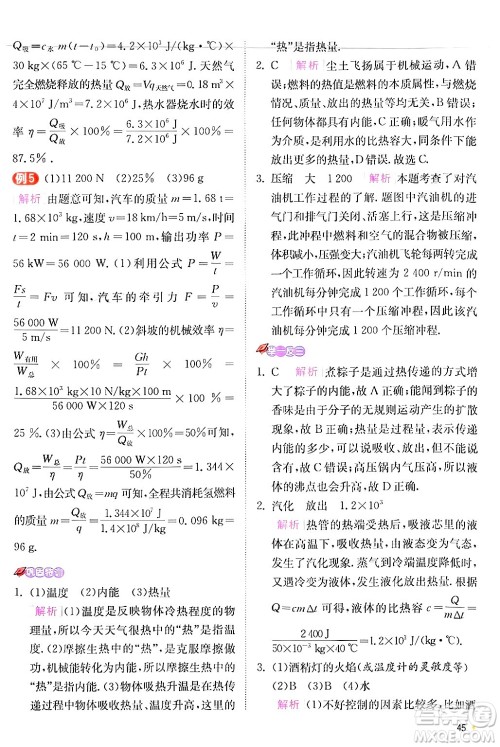 Q吸=c水 m(t-t0)=4.2×10³ J/(kg·℃)×
30 kg×(45 ℃-20 ℃)=6.3×10⁶ J，天然气
完全燃烧释放的热量 Q放=Vq天然气=0.18 m³
×4×10⁷ J/m³=7.2×10⁶ J，热水器烧水时的效
率 η=Q吸/Q放×100%=6.3×10⁶ J/7.2×10⁶ J×100%=
87.5%.
例5 (1)11 200 N (2)25% (3)96 g
解析 由题意可知，汽车的质量 m=1.68 t=
1.68×10³ kg，速度 v=18 km/h=5 m/s，时间
t=2 min=120 s，输出功率 P=
56 kW=56 000 W.(1)利用公式 P=W/t=
Fs/t=Fv 可知，汽车的牵引力 F=P/v=
56 000 W/5 m/s=11 200 N.(2)斜坡的机械效率 η=
W有/W总×100%=Gh/Pt×100%=
×100%=
25%.(3)由公式 η=W总/Q放=Pt/Q放 可知，
Q放=W总/η=Pt/η=56 000 W×120 s/50%=1.344×
10⁷ J，由公式 Q放=mq 可知，全程共消耗氢燃料
的质量 m=Q放/q=1.344×10⁷ J/1.4×10⁸ J/kg=0.096 kg=
96 g.
1. (1)温度 (2)内能 (3)热量
解析 (1)温度是反映物体冷热程度的物
理量，所以今天天气很热中的“热”是温
度.(2)摩擦生热中的“热”，是克服摩擦做功，
机械能转化为内能，所以摩擦生热中的
“热”指内能.(3)物体吸热升温中的“热”
是指物体吸收了热量，所以物体吸热升温中的
“热”是热量.
2. C 解析 尘土飞扬属于机械运动，A 错
误；燃料的热值是燃料的本质属性，与燃料
的质量、放出的热量等无关，B 错误；
任何物体都有内能，D 错误；用水的
暖气为介质，是利用水的比热容大的
特点，相同情况下能放出更多的热量，C 正
确.故选 C.
3. 压缩 大 1 200 解析 本题考查了对汽
油机工作过程的理解.题图中汽油机的进
气门和排气门都关闭、活塞上行，为压缩冲
程，压缩燃料和空气的混合物被压缩后内
能增大.因此转速为 2 400 r/min 的
汽油机每分钟完成 1 200 个工作循环，每个
工作循环有一个压缩冲程，所以汽
油机每分钟完成 1 200 个压缩冲程.
举一反三
1. C 解析 煮粽子是通过热传递的方式增
大了粽子的内能，A 正确；能闻到粽子的
香味是由于分子的无规则运动产生的扩散
现象，B 正确；热量是过程量，表述时，
可以说吸收、放出热量，但不能说含有热
量，C 错误；高压锅内气压高，所以锅内液
体的沸点也会升高，D 正确.
2. 汽化 放出 1.2×10³
解析 热管的热端受热后，吸液芯中的
液体吸热汽化，蒸气在冷端液化放热.
由 Q=cmΔt 可得，该液体的比热容
c=Q/mΔt=2 400 J/50×10⁻³ kg×40 ℃=1.2×10³ J/(kg·℃).
3. (1)酒精灯的火焰(或温度计的灵敏度等)
(2)B (3)水 (4)B
解析 (1)不好控制的因素比较多，如酒
45